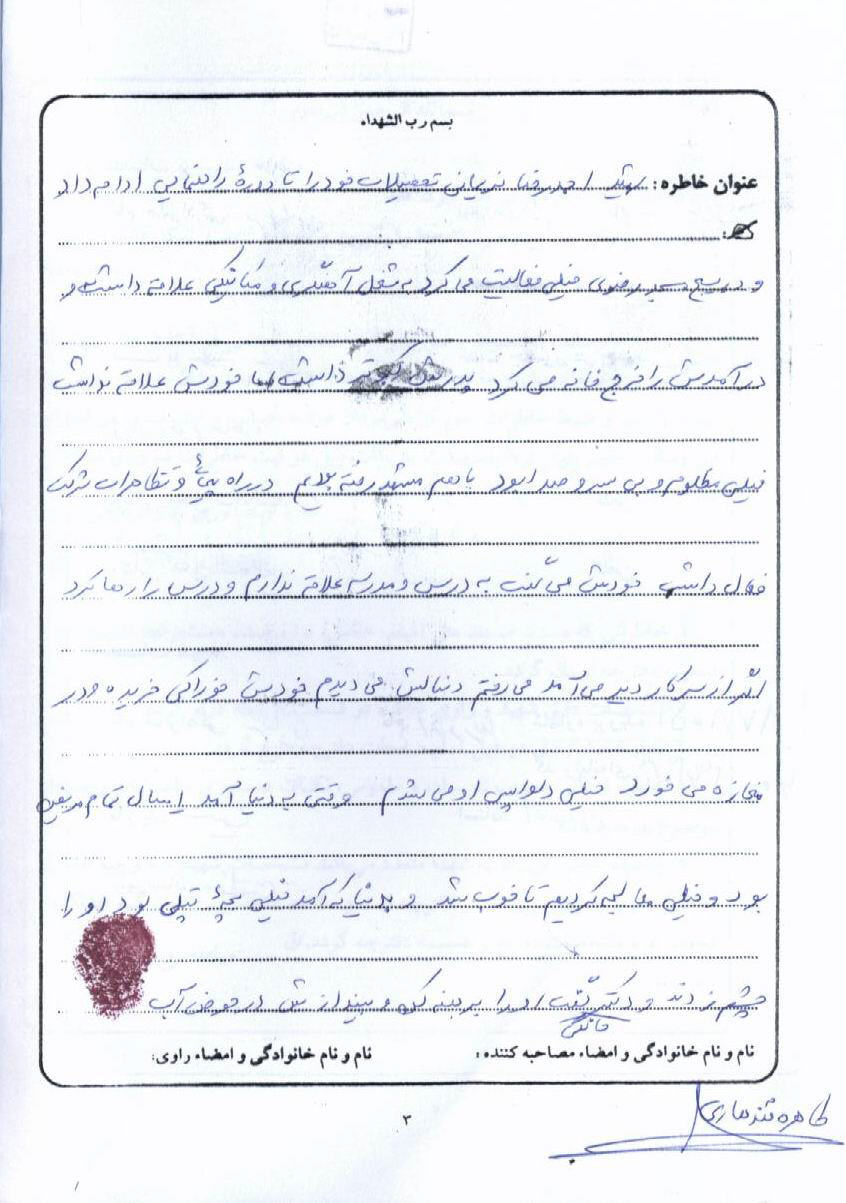 بسم رب الشهداء
عنوان خاطره: شهید احمدرضا نریمانی تحصیلات خود را تا دورهٔ راهنمایی ادامه داد
و در بسیج مسجد رضوی خیلی فعالیت می کرد به شغل آهنگری و مکانیکی علاقه داشت و
درآمدش را خرج خانه می کرد پدرش کبوتر داشت اما خودش علاقه نداشت
خیلی مظلوم و بی سر و صدا بود با هم مشهد رفته بودیم در راه پیمائی و تظاهرات شرکت
فعال داشت خودش می گفت به درس و مدرسه علاقه ندارم و درس را رها کرد
اگر از سر کار دیر می آمد می رفتم دنبالش می دیدم خودش خوراکی خریده و در
مغازه می خورد خیلی دلواپس او می شدم وقتی به دنیا آمد یکسال تمام مریض
بود و خیلی معالجه کردیم تا خوب شد و بدنیا که آمد خیلی بچهٔ تپلی بود او را
چشم زدند و دکتر گفت او را ببر بینداز در حوض آب
خانگی
نام و نام خانوادگی و امضاء مصاحبه کننده:
نام و نام خانوادگی و امضاء راوی:
طاهره قندهاری
۳